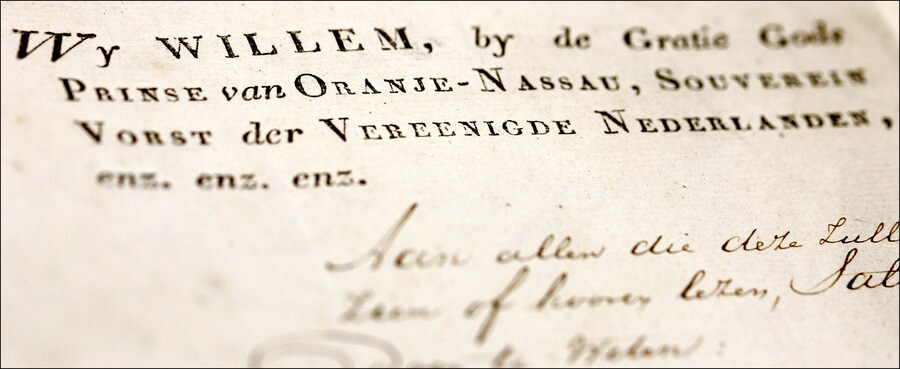 Wy WILLEM, by de Gratie Gods
PRINSE van ORANJE-NASSAU, SOUVEREIN
VORST der VEREENIGDE NEDERLANDEN,
enz. enz. enz.
Aan allen die deze zull
zien of hooren lezen, Sal
Weten: